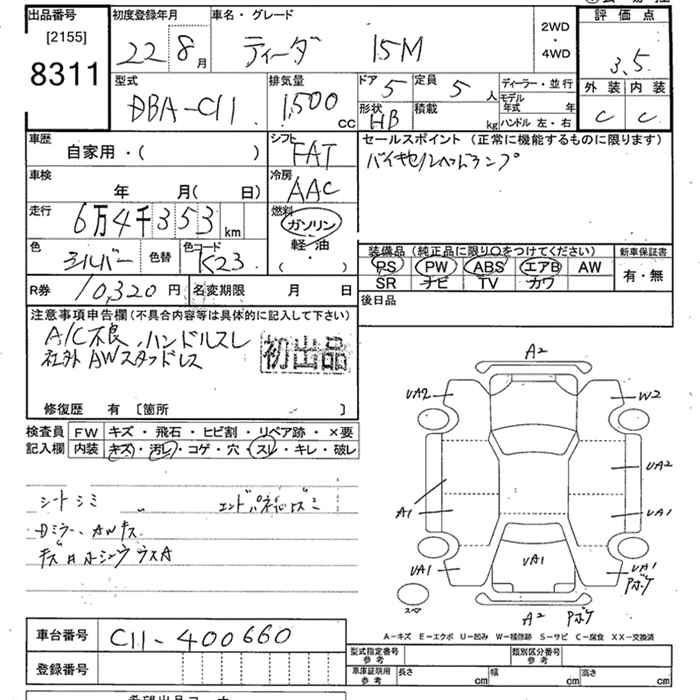 出品番号 初度登録年月 車名・グレード 2WD・4WD 評価点
[2155]
8311 22年8月 ティーダ 15M 3.5
型式 排気量 ドア 5 定員 5人 ディーラー・並行 外装 内装
DBA-C11 1,500cc 形状 HB 積載 kg モデル年式 年 ハンドル 左・右 C C
車歴 自家用・( ) シフト FAT セールスポイント(正常に機能するものに限ります)
車検 年 月( 日) 冷房 AAC バイキセノンヘッドランプ
走行 6万4千353km 燃料 ガソリン 軽・油 ( ・ )
色 シルバー 色替 色コード K23 装備品(純正品に限り〇をつけてください) 新車保証書
PS PW ABS エアB AW 有・無
SR ナビ TV カワ
R券 10,320円 名変期限 月 日 後日品
注意事項申告欄(不具合内容等は具体的に記入して下さい)
A/C不良、ハンドルスレ
社外AWスタッドレス 初出品
修復歴 有 [箇所 ]
検査員記入欄 FW キズ・飛石・ヒビ割・リペア跡・×要
内装 キズ・汚レ・コゲ・穴・スレ・キレ・破レ
シートシミ
Dミラー、AWキズ
A2
UA2 W2
UA2
A1 UA1
UA1 UA1 UA1
Pボケ
スペア A2 Pボケ
A-キズ E-エクボ U-凹み W-補修跡 S-サビ C-腐食 XX-交換済
車台番号 C11-400660
型式指定番号 参考 類別区分番号 参考
登録番号 車庫証明用 参考 長さ cm 幅 cm 高さ cm